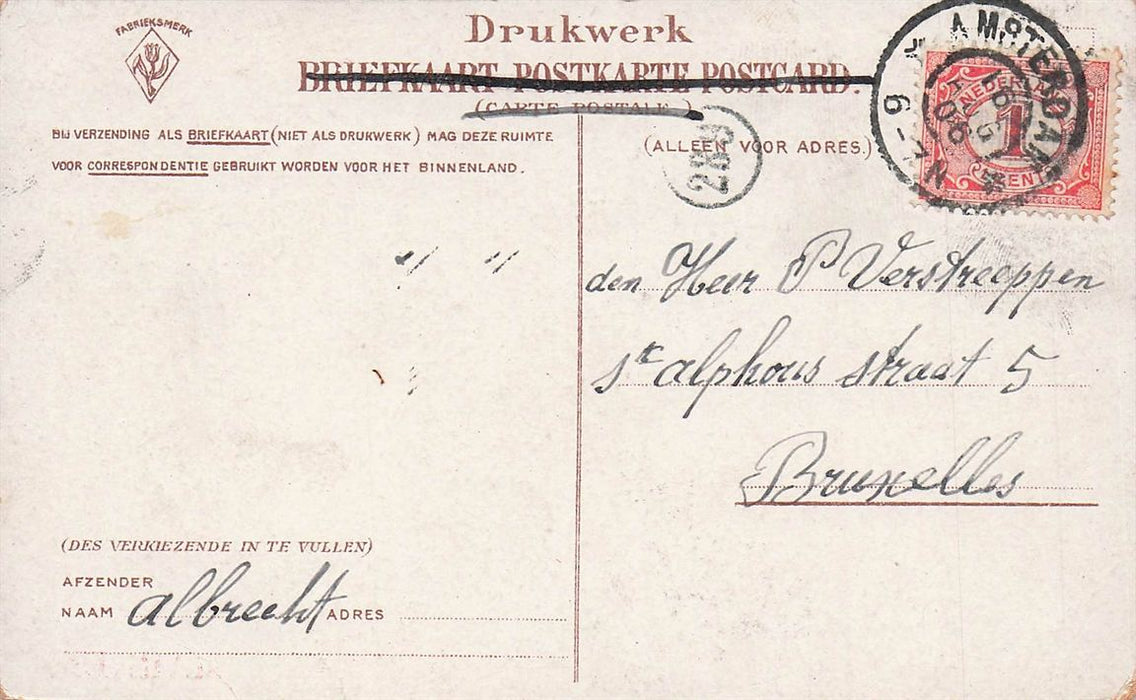 FABRIEKSMERK
Drukwerk
BRIEFKAART POSTKARTE POSTCARD.
(CARTE POSTALE)
BIJ VERZENDING ALS BRIEFKAART (NIET ALS DRUKWERK) MAG DEZE RUIMTE
VOOR CORRESPONDENTIE GEBRUIKT WORDEN VOOR HET BINNENLAND.
(ALLEEN VOOR ADRES.)
2B9
AMSTERDAM
6-7N
NEDERLAND
1
CENT
den Heer P Verstreeppen
st alphons straat 5
Bruxelles
(DES VERKIEZENDE IN TE VULLEN)
AFZENDER
NAAM albrecht ADRES